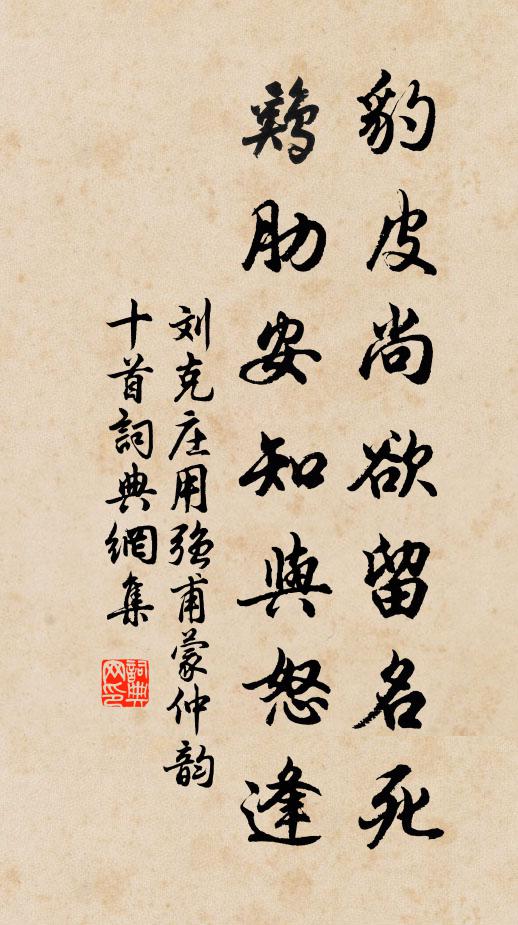 豹皮尚欲留名死
鷄肋安知與怒逢
刘克庄用强甫蒙仲韵
十首詞典網集
詞典网印